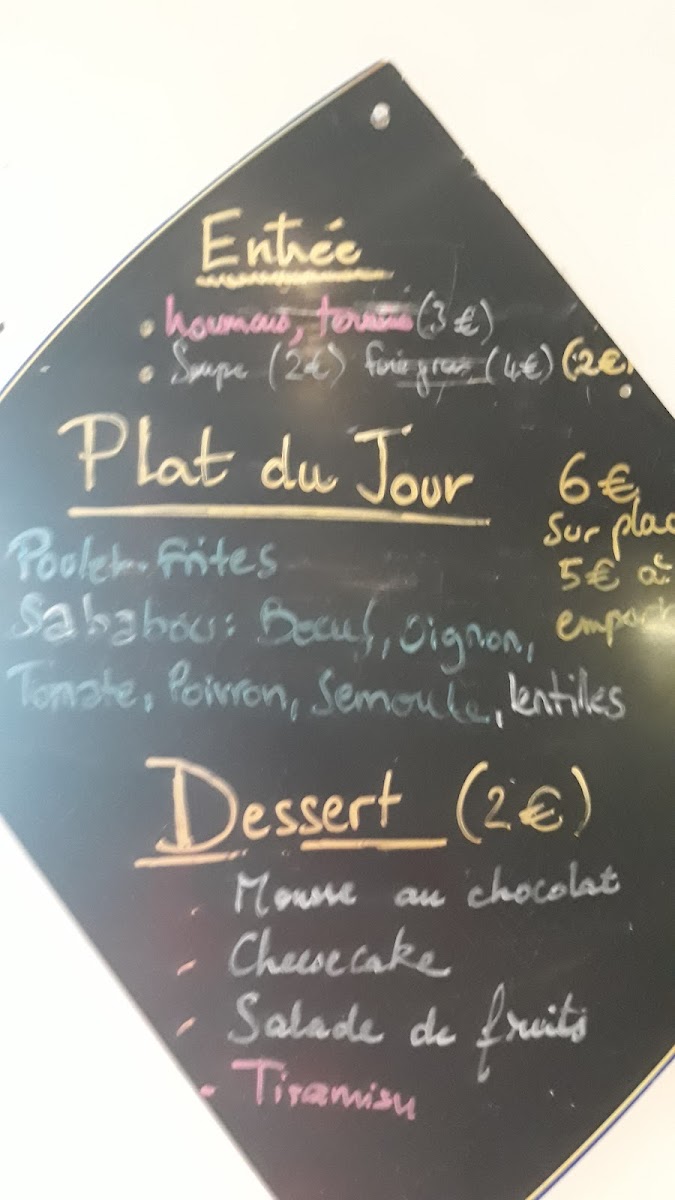 Entrée
• houmous, terrine (3€)
• Soupe (2€) foie gras (4€) (2€
Plat du Jour
6€
sur plac
5€ à
Poulet-frites
Sababou: Boeuf, oignon,
emport
Tomate, Poivron, Semoule, lentilles
Dessert (2€)
- Mousse au chocolat
- Cheesecake
- Salade de fruits
- Tiramisu